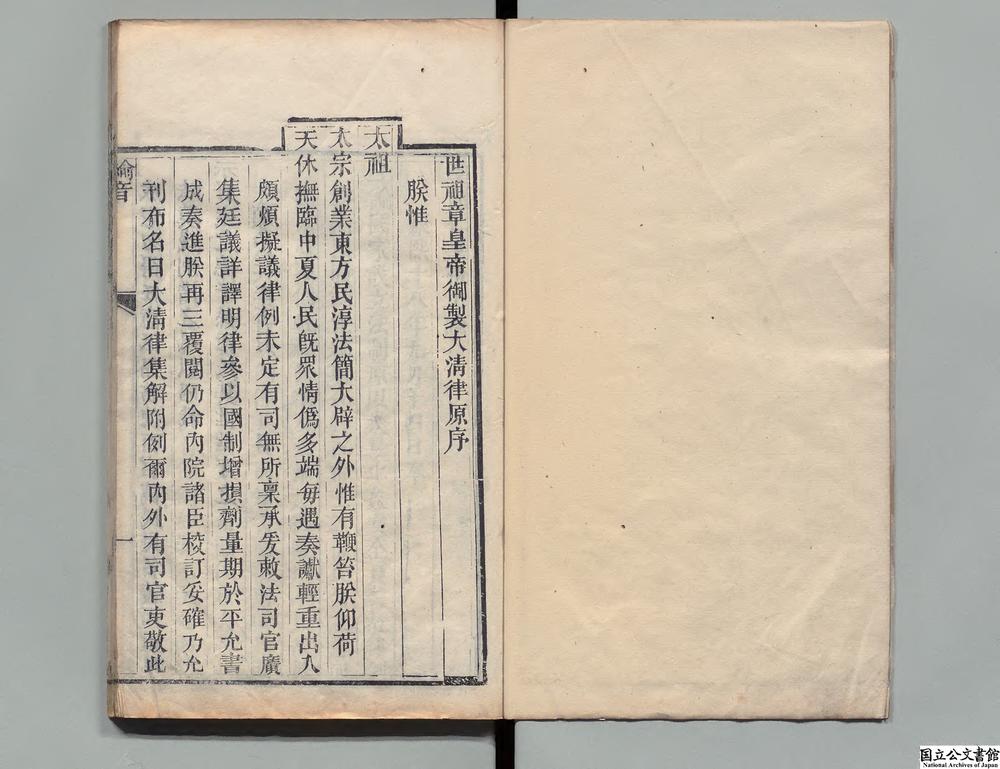 世祖章皇帝御製大清律原序
朕惟
太祖
太宗創業東方民淳法簡大辟之外惟有鞭笞朕仰荷
天休撫臨中夏人民既眾情僞多端每遇奏讞輕重出入
頗煩擬議律例未定有司無所稟承爰敕法司官廣
集廷議詳譯明律參以國制增損劑量期於平允書
成奏進朕再三覆閱仍命內院諸臣校訂妥確乃允
刊布名曰大清律集解附例爾內外有司官吏敬此
一
国立公文書館
National Archives of Japan